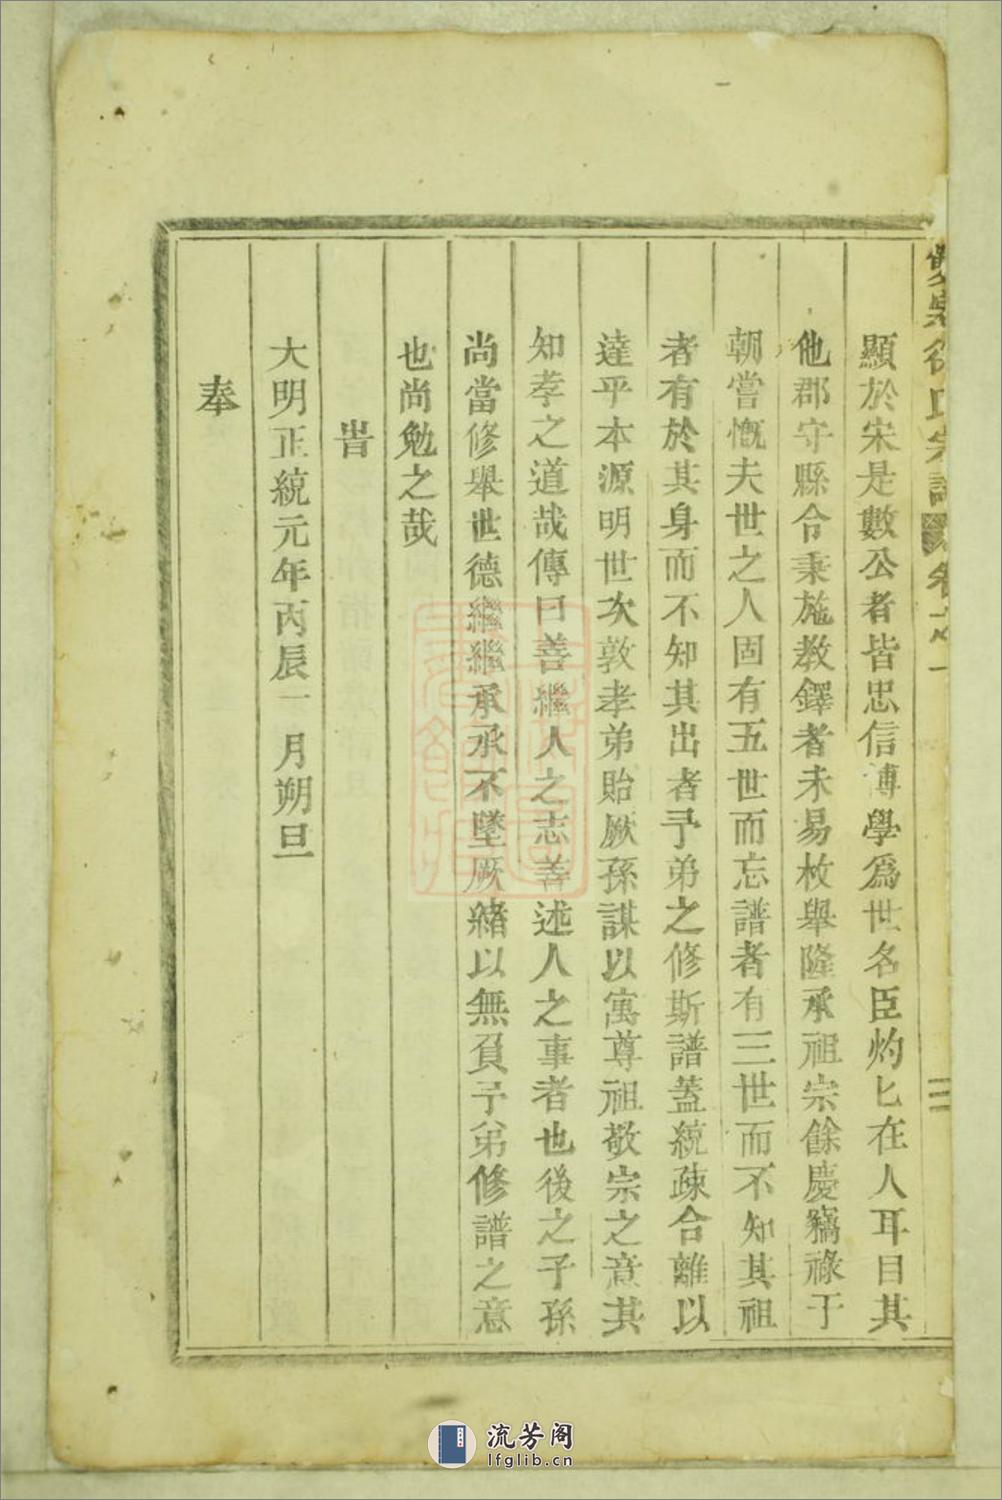 氏宗譜 卷之一 二
顯於宋是數公者皆忠信博學爲世名臣灼匕在人耳目其
他郡守縣令秉施教鐸者未易枚舉隆承祖宗餘慶竊祿于
朝嘗慨夫世之人固有五世而忘譜者有三世而不知其祖
者有於其身而不知其出者予弟之修斯譜蓋統疎合離以
達乎本源明世次敦孝弟貽厥孫謀以寓尊祖敬宗之意其
知孝之道哉傳曰善繼人之志善述人之事者也後之子孫
尚當修舉世德繼繼承承不墜厥緒以無負予弟修譜之意
也尚勉之哉
旹
大明正統元年丙辰一月朔旦
奉
流芳阁
lfglib.cn